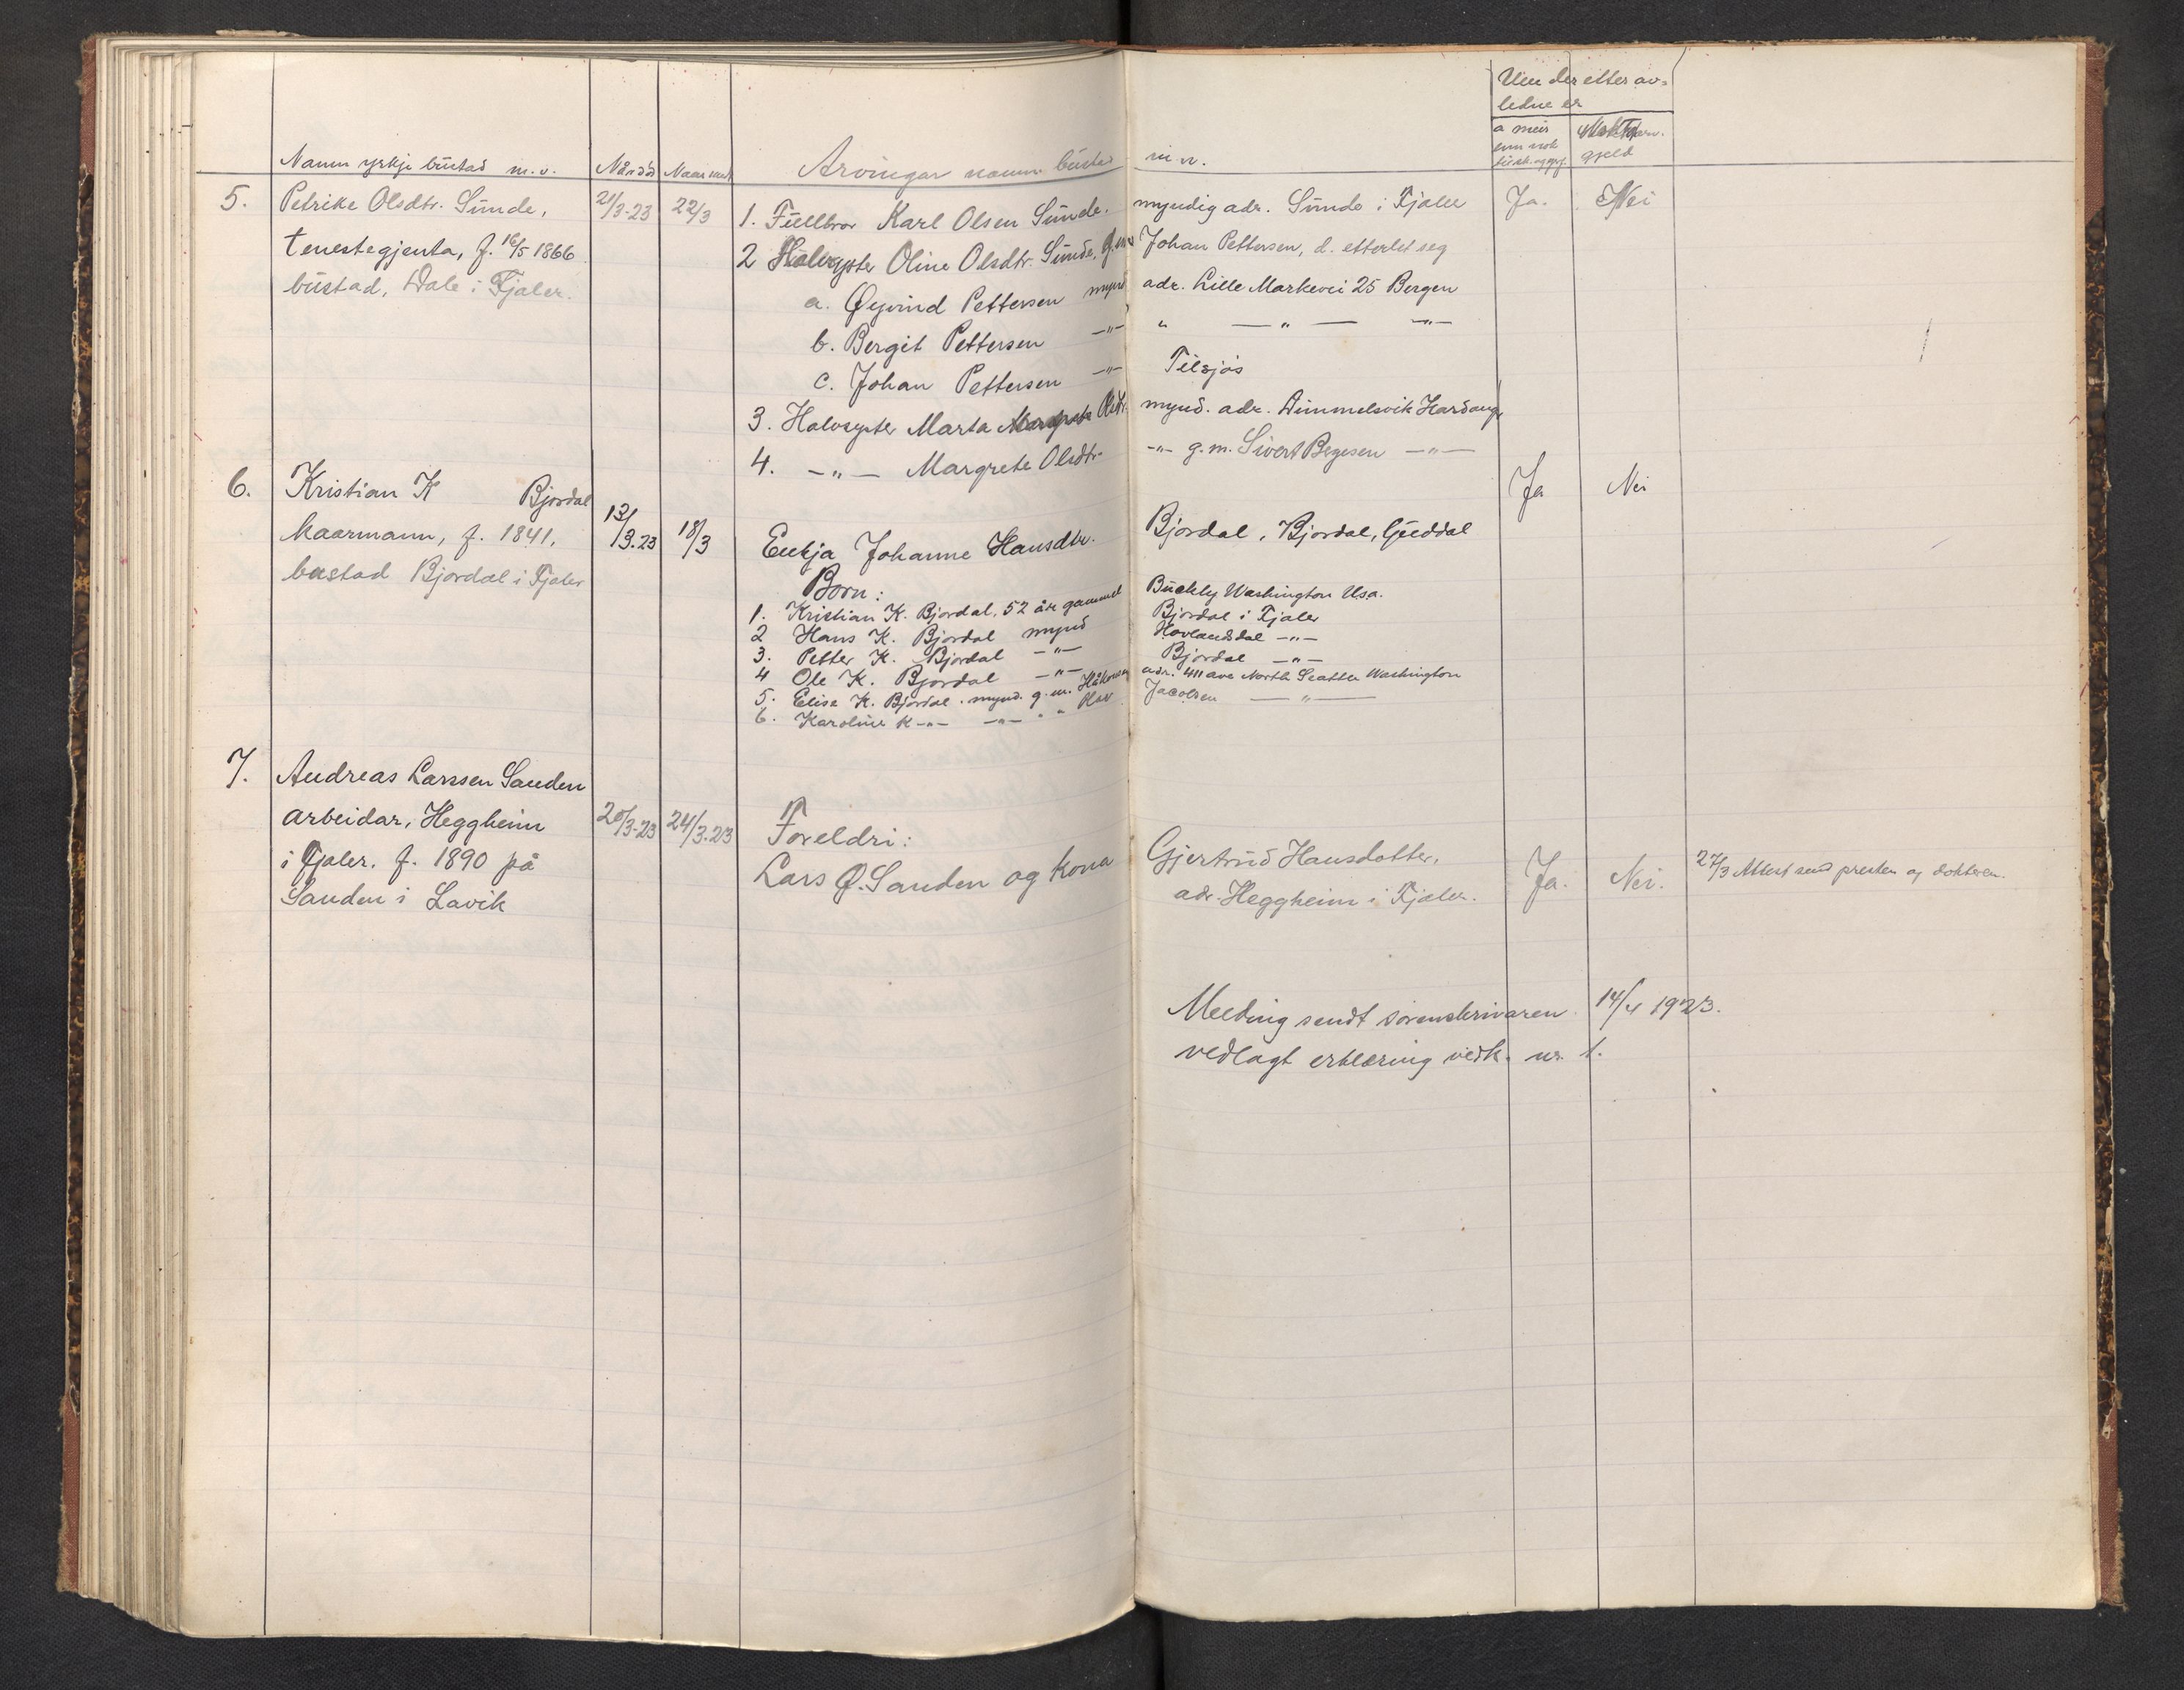 Um der etter av-
ledne er
a meir
enn nok
til sk. og grf. gjeld
Namn yrkje bustad m.v. Når død Naar meld Arvingar namn bustad m.v.
5. Petrike Olsdtr. Sunde, 21/3-23 22/3 1. Fullbror Karl Olsen Sunde, myndig adr. Sunde i Fjaler Ja. Nei
tenestegjenta, f. 16/5 1866 2 Halvsyster Oline Olsdtr. Sunde, g.m. Johan Pettersen, d. etterlet seg
bustad, Dale i Fjaler. a. Øyvind Pettersen mynd. adr. Lille Markevei 25 Bergen
b. Bergit Pettersen -"- " -"- -"-
c. Johan Pettersen -"- Tilsjøs
3. Halvsyster Marta Olsdtr. mynd. adr. Dimmelsvik Hardang.
4. -"- Margrete Olsdtr. -"- g.m. Sivert Børgesen -"-
6. Kristian K Bjordal Ja Nei
kaarmann, f. 1841, 13/3.23 18/3 Enkja Johanne Hansdtr. Bjordal, Bjordal, Guddal
bustad Bjordal i Fjaler
Born:
1. Kristian K. Bjordal, 52 år gammel Buckley Washington Usa.
2 Hans K. Bjordal mynd Bjordal i Fjaler
3. Petter K. Bjordal -"- Hovlandsdal -"-
4 Ole K. Bjordal -"- Bjordal -"-
5. Elise K. Bjordal. mynd. g.m. Håkon adr. 411 ave North Seattle Washington
6. Karoline K -"- -"- " " Olav Jacobsen -"-
7. Andreas Larssen Sanden
arbeidar, Heggheim 20/3-23 24/3.23 Foreldri:
i Fjaler. f. 1890 på Lars Ø. Sanden og kona Gjertrud Hansdotter, Ja. Nei. 27/3 Attest send presten og dokteren.
Sanden i Lavik adr. Heggheim i Fjaler.
Melding sendt sorenskrivaren 14/4 1923.
vedlagt erklæring vedk. nr. 1.